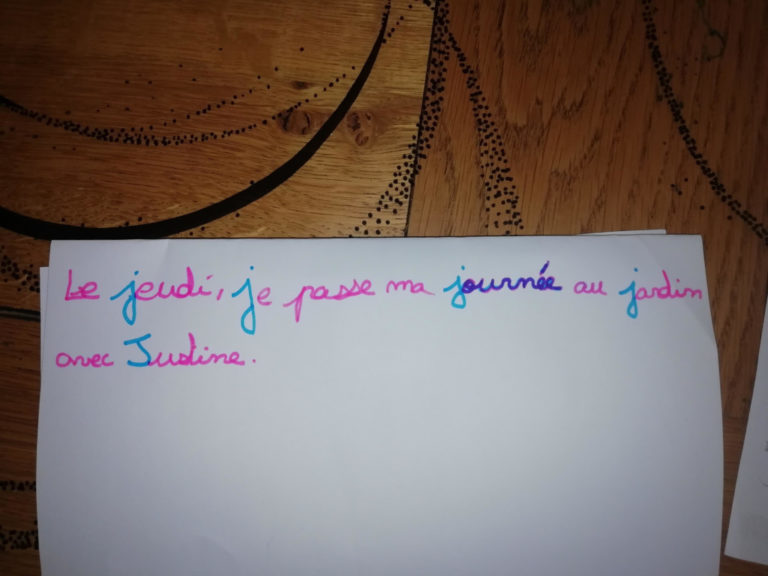 Le jeudi, je passe ma journée au jardin
avec Justine.